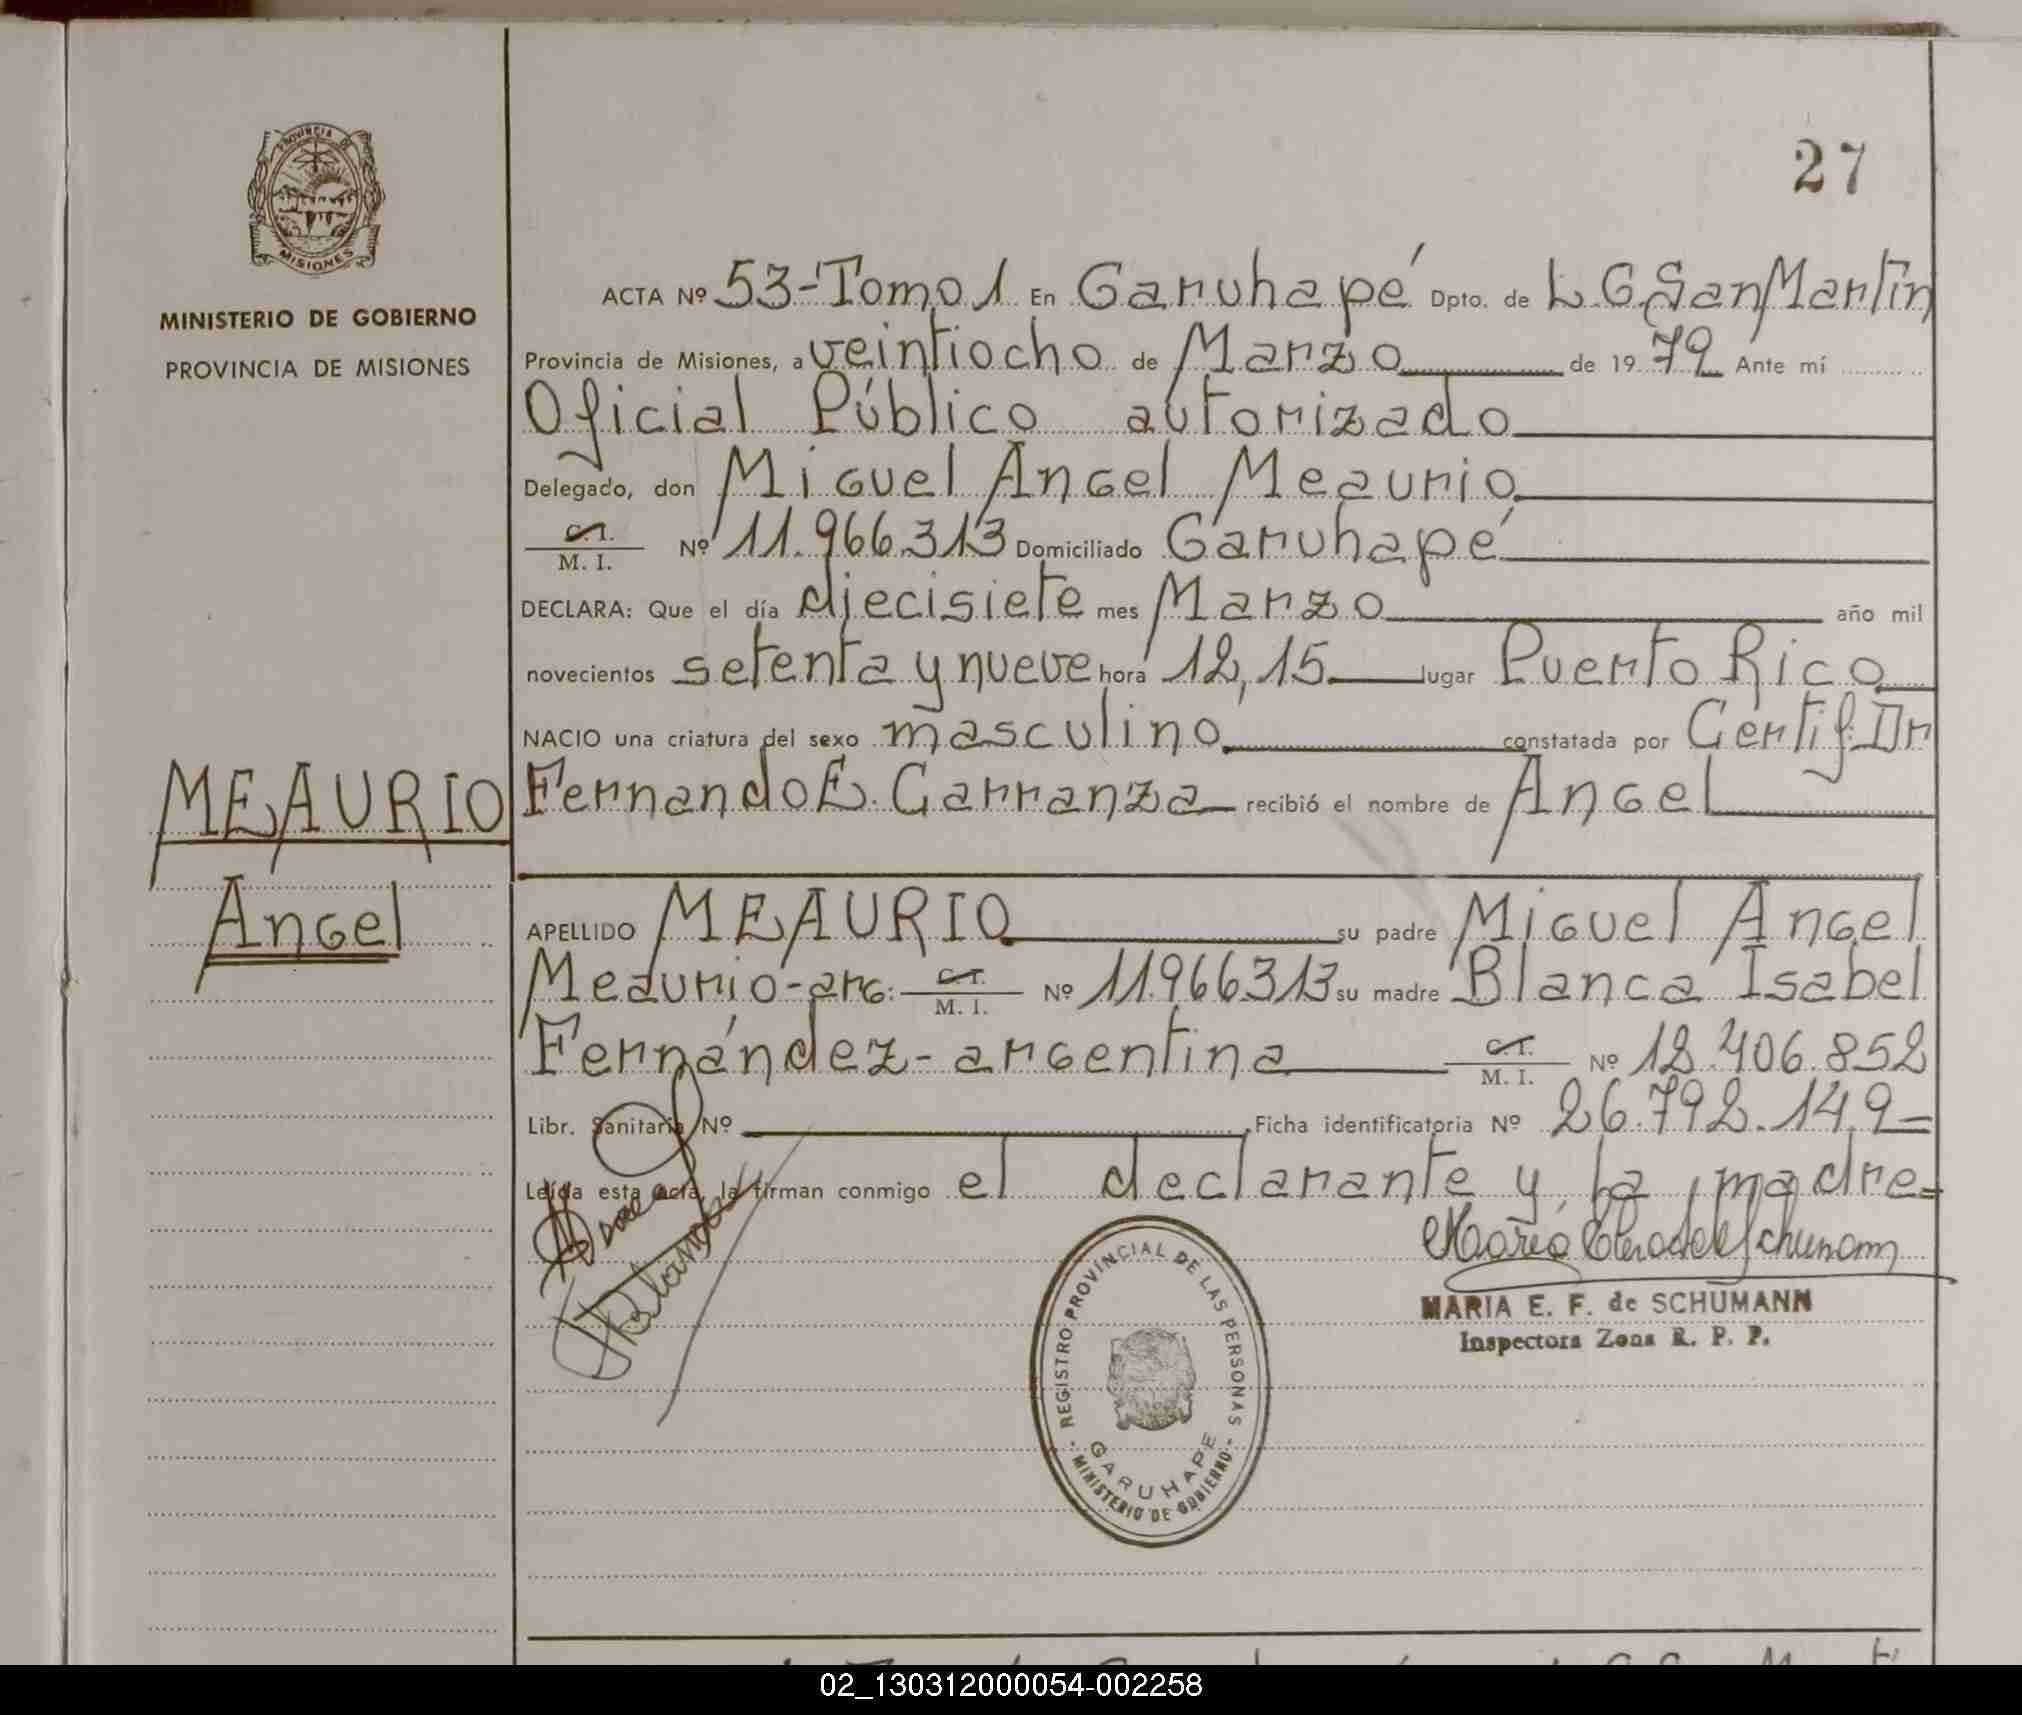 27
PROVINCIA DE
MISIONES
MINISTERIO DE GOBIERNO
PROVINCIA DE MISIONES
ACTA Nº 53-Tomo 1 En Garuhapé Dpto. de L.G.San Martin
Provincia de Misiones, a veintiocho de Marzo de 1979 Ante mí
Oficial Público autorizado
Delegado, don Miguel Angel Meaurio
C.I.
M. I. Nº 11.966.313 Domiciliado Garuhapé
DECLARA: Que el día diecisiete mes Marzo año mil
novecientos setenta y nueve hora 12,15 lugar Puerto Rico
NACIO una criatura del sexo masculino constatada por Certif. Dr
Fernando E. Carranza recibió el nombre de Angel
MEAURIO
Angel
APELLIDO MEAURIO su padre Miguel Angel
Meaurio-arg: C.I. M. I. Nº 11.966.313 su madre Blanca Isabel
Fernández - argentina C.I. M. I. Nº 12.406.852
Libr. Sanitaria Nº Ficha identificatoria Nº 26.792.149-
Leída esta acta, la firman conmigo el declarante y la madre=
MARIA E. F. de SCHUMANN
Inspectora Zona R. P. P.
REGISTRO PROVINCIAL DE LAS PERSONAS
GARUHAPE
- MINISTERIO DE GOBIERNO -
02_130312000054-002258